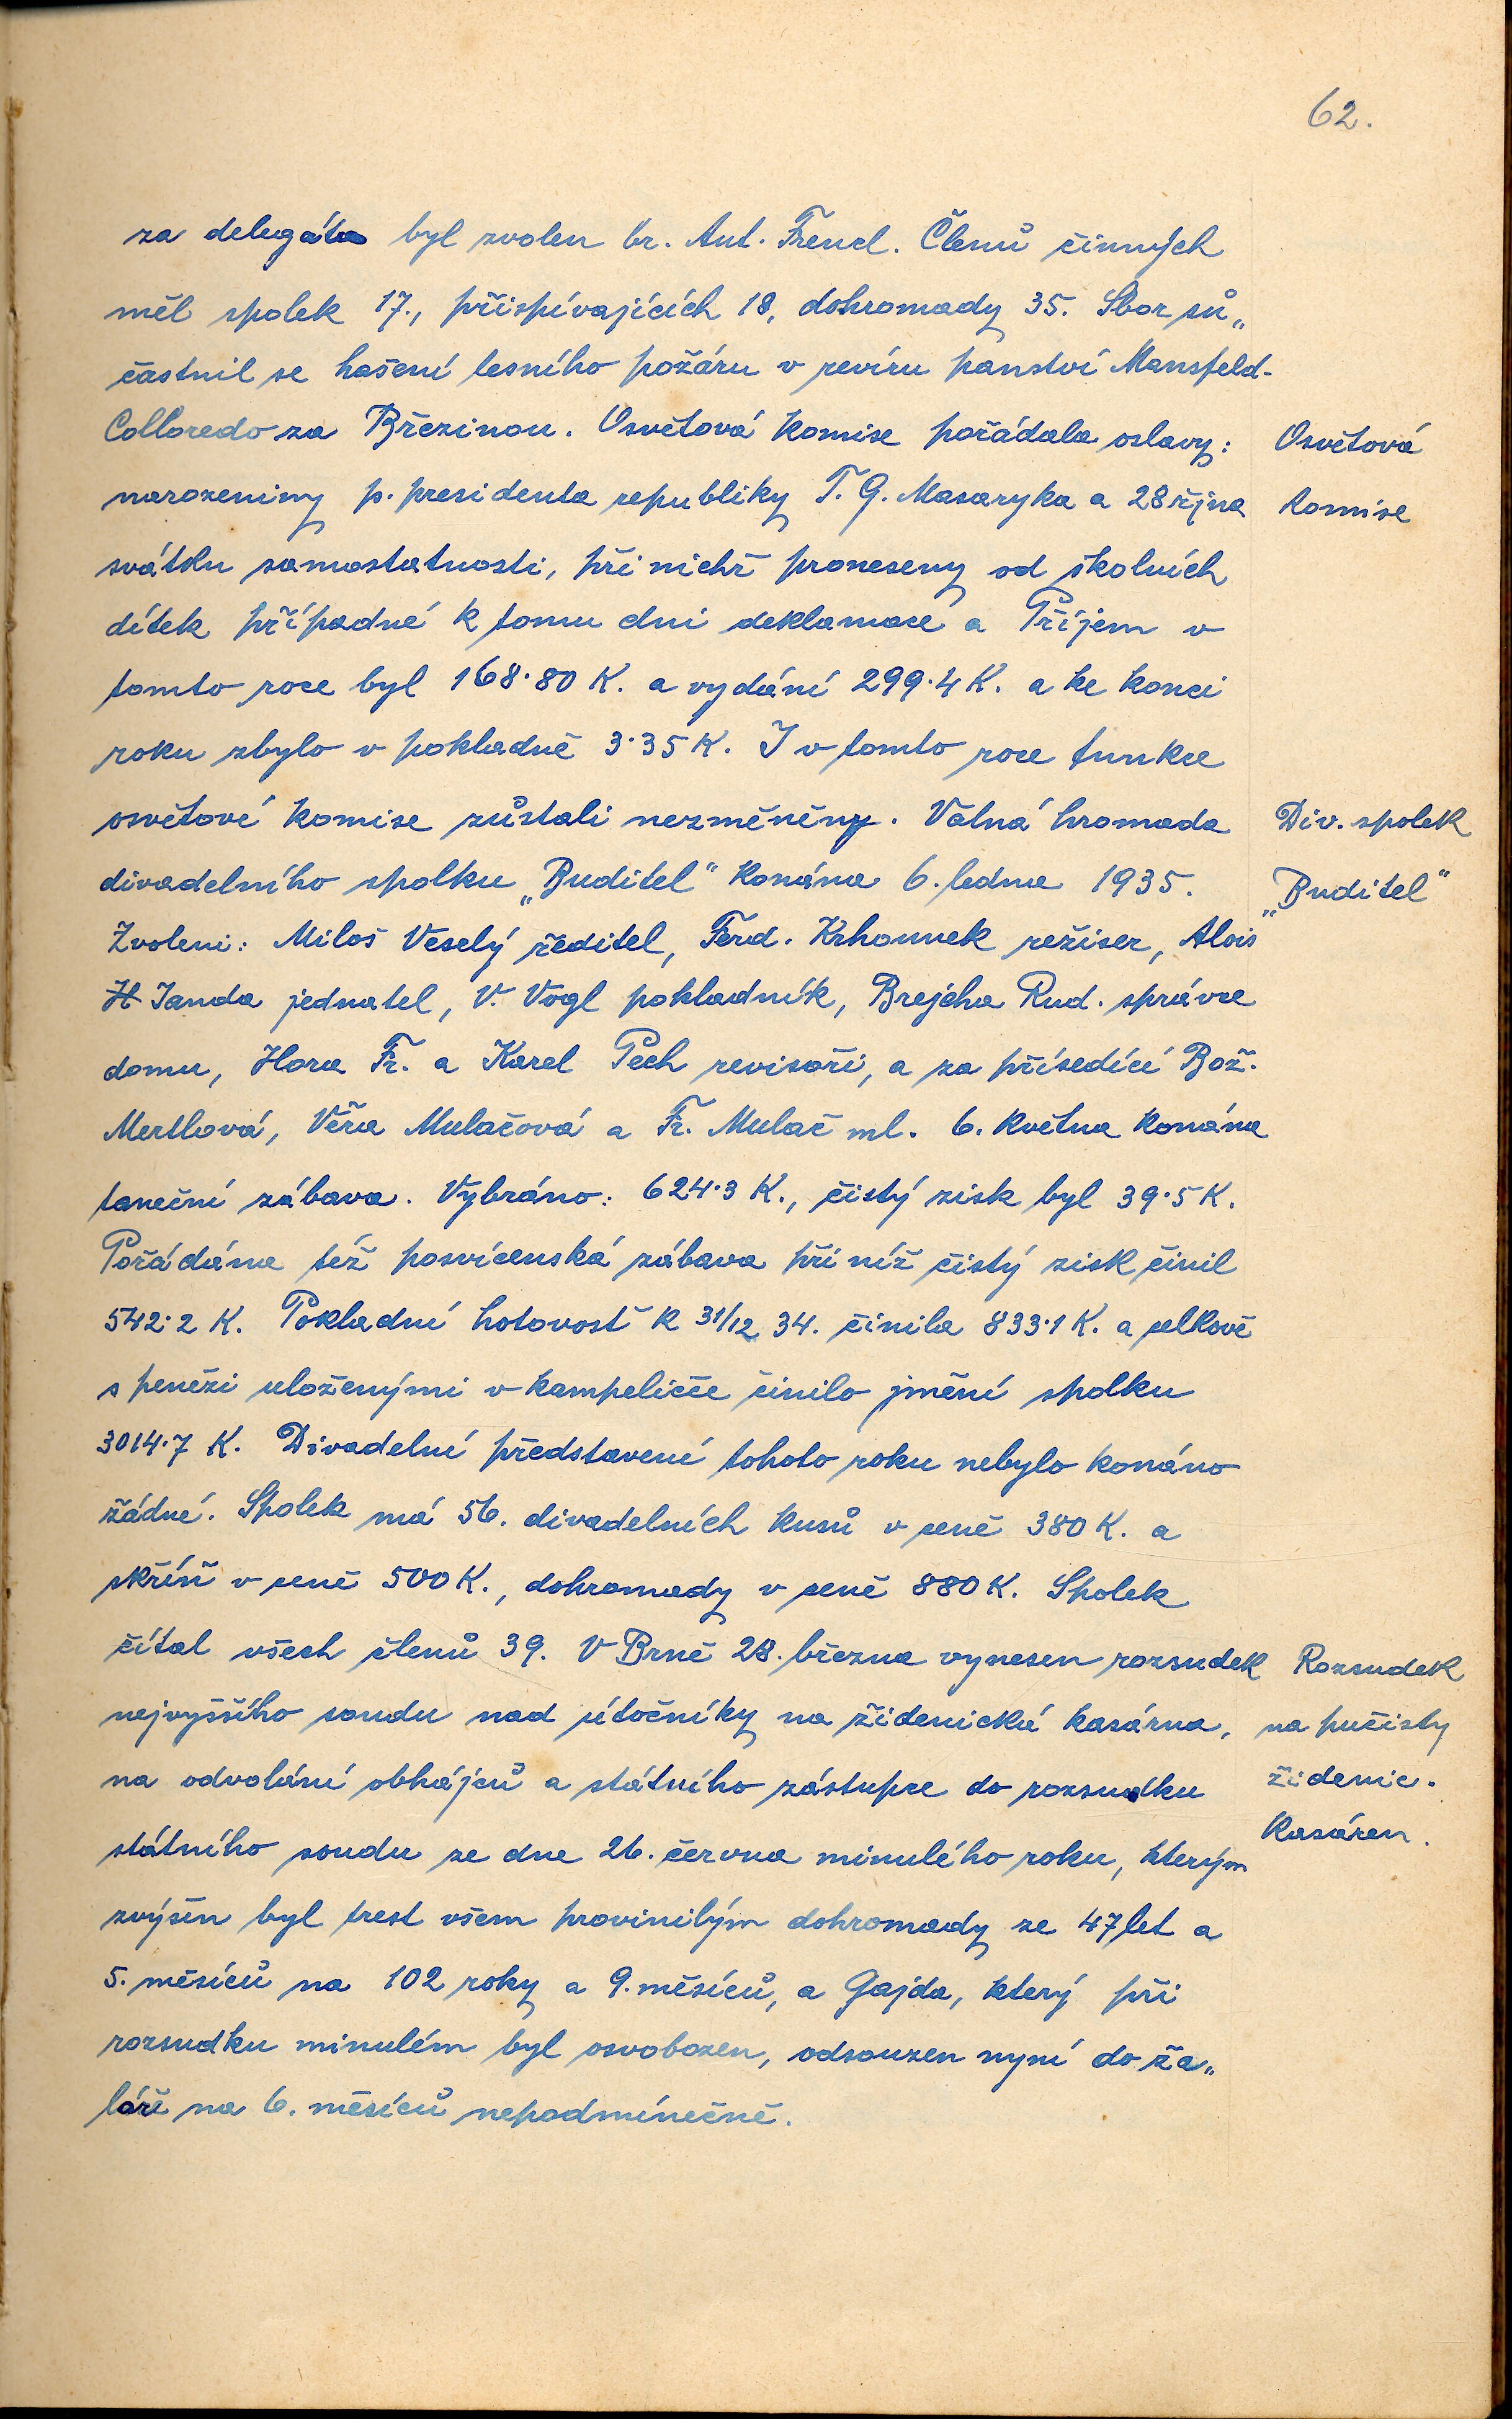 62.
za delegáta byl zvolen br. Ant. Frencl. Členů činných
měl spolek 17., přispívajících 18, dohromady 35. Sbor sů„
častnil se hašení lesního požáru v revíru panství Mansfeld-
Colloredo za Březinou. Osvětová komise pořádala oslavy:
Osvětová
narozeniny p. presidenta republiky T. G. Masaryka a 28 října
komise
svátku samostatnosti, při nichž proneseny od školních
dítek případné k tomu dni deklamace a Příjem v
tomto roce byl 168·80 K. a vydání 299·4 K. a ke konci
roku zbylo v pokladně 3·35 K. I v tomto roce funkce
osvětové komise zůstali nezměněny. Valná hromada
Div. spolek
divadelního spolku „Buditel" konána 6. ledna 1935.
„Buditel"
Zvoleni: Miloš Veselý ředitel, Ferd. Krhounek režiser, Alois
H Janda jednatel, V. Vogl pokladník, Brejcha Rud. správce
domu, Hora Fr. a Karel Pech revisoři, a za přísedící Bož.
Mertlová, Věra Mulačová a Fr. Mulač ml. 6. května konána
taneční zábava. Vybráno: 624·3 K., čistý zisk byl 39·5 K.
Pořádána též posvícenská zábava při níž čistý zisk činil
542·2 K. Pokladní hotovost k 31/12 34. činila 833·1 K. a celkově
s penězi uloženými v kampeličce činilo jmění spolku
3014·7 K. Divadelní představení tohoto roku nebylo konáno
žádné. Spolek má 56. divadelních kusů v ceně 380 K. a
skříň v ceně 500 K., dohromady v ceně 880 K. Spolek
čítal všech členů 39. V Brně 28. března vynesen rozsudek
Rozsudek
nejvyššího soudu nad útočníky na židenická kasárna,
na pučisty
na odvolání obhájců a státního zástupce do rozsudku
židenic.
státního soudu ze dne 26. června minulého roku, kterým
kasáren.
zvýšen byl trest všem provinilým dohromady ze 47 let a
5. měsíců na 102 roky a 9. měsíců, a Gajda, který při
rozsudku minulém byl osvobozen, odsouzen nyní do ža„
láře na 6. měsíců nepodmínečně.